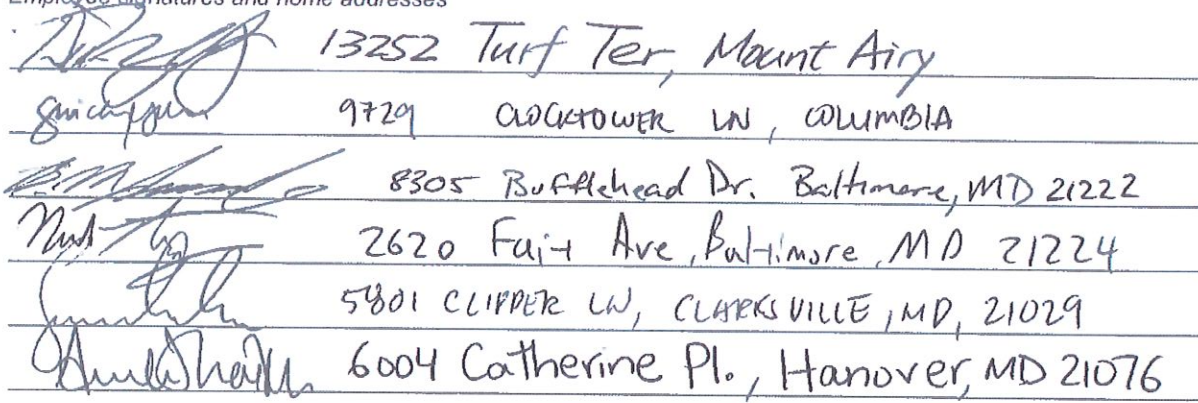 Employee signatures and home addresses
13252 Turf Ter, Mount Airy
9729 CLOCKTOWER LN, COLUMBIA
8305 Bufflehead Dr. Baltimore, MD 21222
2620 Fait Ave, Baltimore, MD 21224
5801 CLIPPER LN, CLARKSVILLE, MD, 21029
6004 Catherine Pl., Hanover, MD 21076